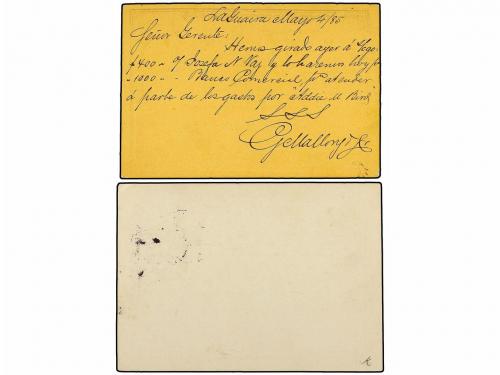 La Guaira Mayo 4/85
Señor Gerente:
Hemos girado ayer á Cargo
$400 - o/ Josefa N. Vaz y lo haremos hoy por
- 1000 - Banco Comercial pa atender
á parte de los gastos por "Addie M Bird"
S S S